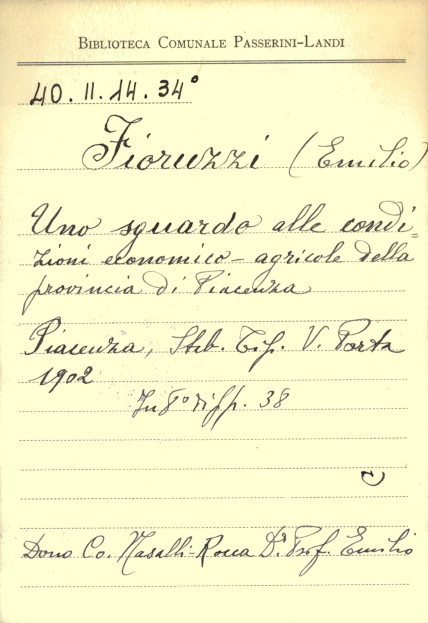 BIBLIOTECA COMUNALE PASSERINI-LANDI
40.II.14.34°
Fioruzzi (Emilio)
Uno sguardo alle condi=
zioni economico-agricole della
provincia di Piacenza
Piacenza, Stab. Tip. V. Porta
1902
In 8° di pp. 38
Dono Co. Nasalli-Rocca Dr. Prof. Emilio